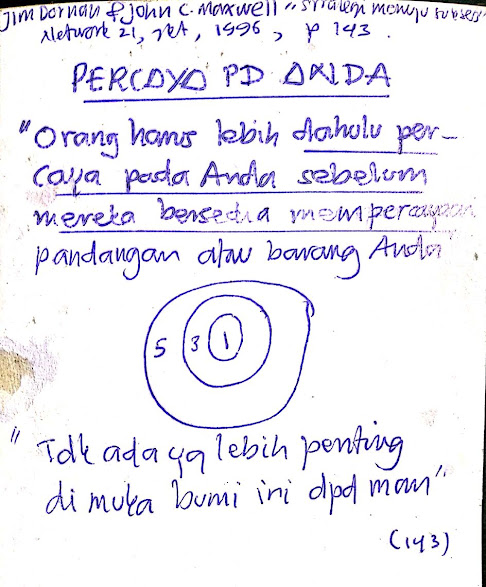 Jim Dornan & John C. Maxwell "Strategi menuju sukses"
Network 21, Jkt, 1996, p 143.
PERCAYA PD ANDA
"Orang harus lebih dahulu per-
caya pada Anda sebelum
mereka bersedia mempercayai
pandangan atau barang Anda"
5 3 1
"Tdk ada yg lebih penting
di muka bumi ini dpd
(143)